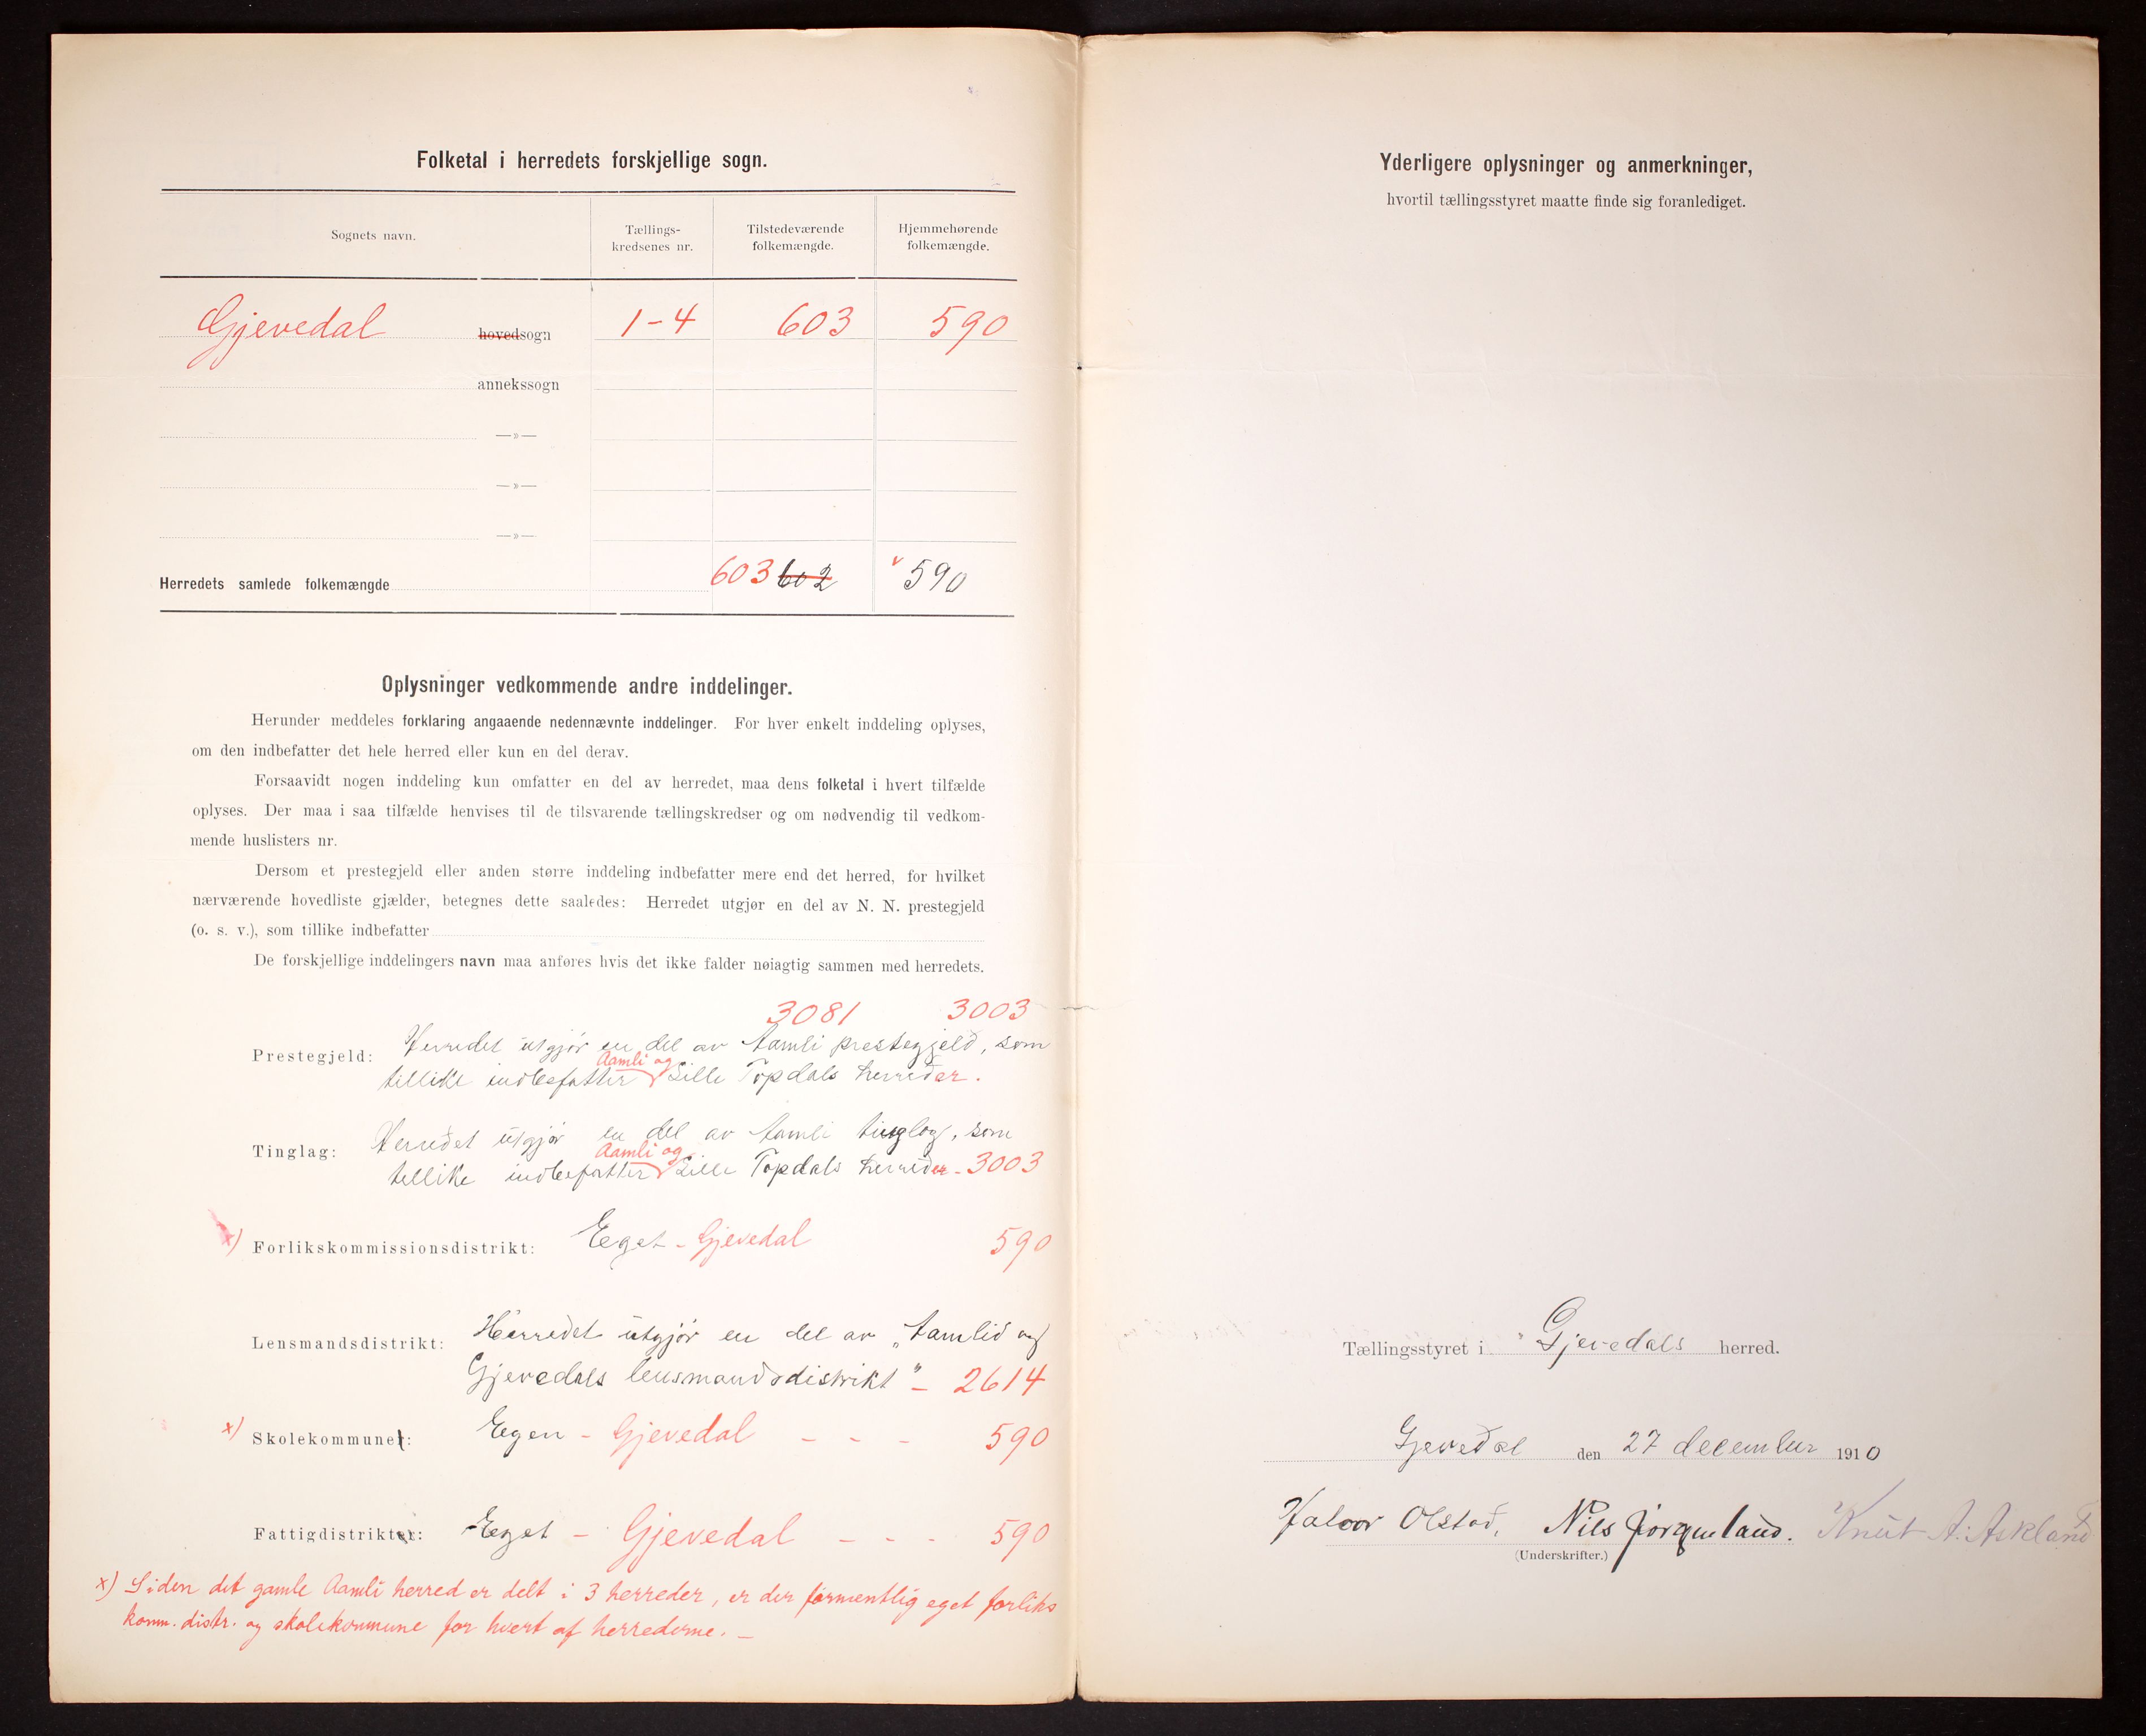 Folketal i herredets forskjellige sogn.
Sognets navn.
Tællings-
kredsenes nr.
Tilstedeværende
folkemængde.
Hjemmehørende
folkemængde.
Gjevedal hovedsogn 1-4 603 590
annekssogn
—»—
—»—
—»—
Herredets samlede folkemængde 603 602 590
Oplysninger vedkommende andre inddelinger.
Herunder meddeles forklaring angaaende nedennævnte inddelinger. For hver enkelt inddeling oplyses,
om den indbefatter det hele herred eller kun en del derav.
Forsaavidt nogen inddeling kun omfatter en del av herredet, maa dens folketal i hvert tilfælde
oplyses. Der maa i saa tilfælde henvises til de tilsvarende tællingskredser og om nødvendig til vedkom-
mende huslisters nr.
Dersom et prestegjeld eller anden større inddeling indbefatter mere end det herred, for hvilket
nærværende hovedliste gjælder, betegnes dette saaledes: Herredet utgjør en del av N. N. prestegjeld
(o. s. v.), som tillike indbefatter
De forskjellige inddelingers navn maa anføres hvis det ikke falder nøiagtig sammen med herredets.
3081 3003
Prestegjeld: Herredet utgjør en del av Aamli prestegjeld, som
Aamli og
tillike indbefatter Lille Topdals herreder.
Tinglag: Herredet utgjør en del av Aamli tinglag, som
Aamli og
tillike indbefatter Lille Topdals herreder - 3003
x) Forlikskommissionsdistrikt: Eget - Gjevedal 590
Lensmandsdistrikt: Herredet utgjør en del av „Aamlid og
Gjevedals lensmandsdistrikt" - 2614
x) Skolekommuner: Egen - Gjevedal - - - 590
Fattigdistrikter: Eget - Gjevedal - - - 590
x) Siden det gamle Aamli herred er delt i 3 herreder, er der formentlig eget forliks
komm. distr. og skolekommune for hvert af herrederne. —
Yderligere oplysninger og anmerkninger,
hvortil tællingsstyret maatte finde sig foranlediget.
Tællingsstyret i Gjevedals herred.
Gjevedal den 27 december 1910
Halvor Olstad, Nils Jørgueland. Knut A. Askland
(Underskrifter.)